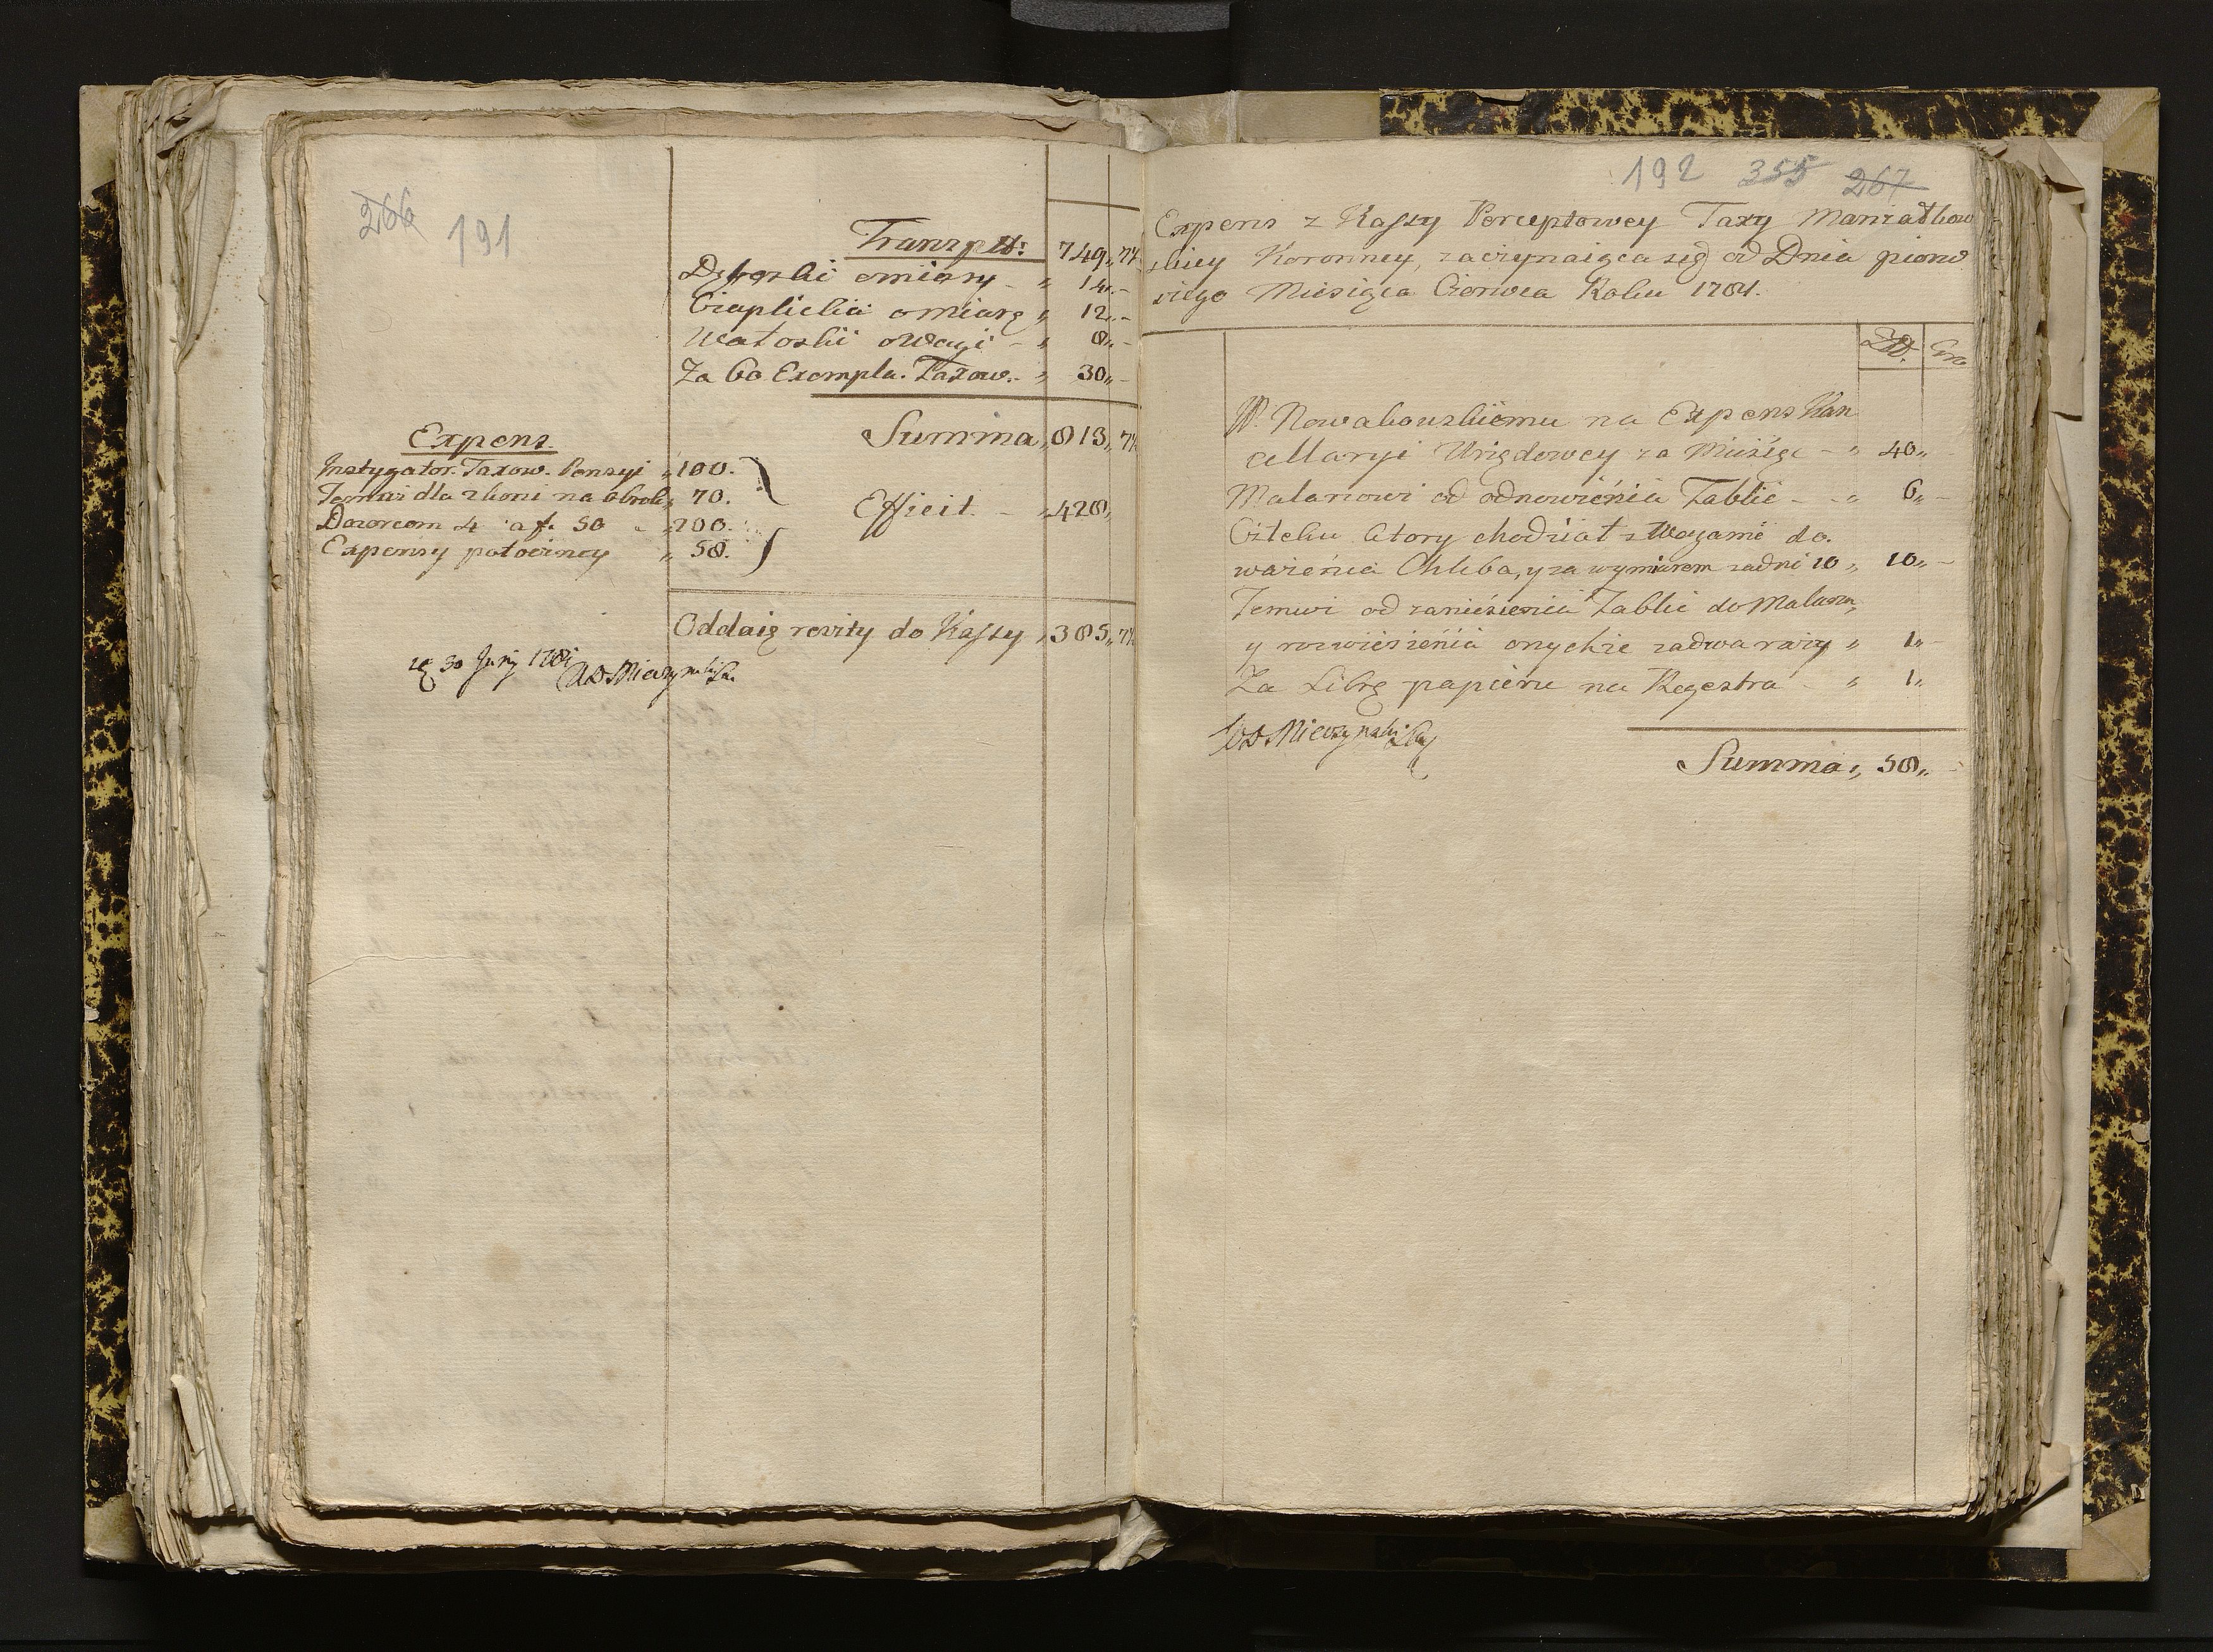 266 191
Transpt: 749„ 7½
Dęboski omiary - „ 14„-
Czaplickia omiarę „ 12„-
Watoskii oWagi - „ 8„-
Za 60 Exempla. Taxow. - „ 30„-
Summa „ 813„ 7½
Expens.
Instygator. Taxow. Pensyi „ 100.
Temuż dla 2 koni na obrok „ 70.
Dozorcom 4 a f. 50 „ 200.
Expensy potoczney „ 58.
Efficit. - „ 428„
Oddaię reszty do Kassy „ 385„ 7½
30 Junij 1781
192 355 267
Expens z Kassy Perceptowey Taxy Marszałkow
skiey Koronney, zaczynaiąca się od Dnia pierw
szego Miesiąca Czerwca Roku 1781.
Zł. Gro
W. Nowakowskiemu na Expens Kan
cellaryi Urzędowey za Miesiąc - „ 40„
Malarzowi od odnowienia Tablic - - „ 6„ -
Człeku ktory chodził z Wagami do
ważenia Chleba, y za wymiarem za dni 10 „ 10„ -
Temuż od zaniesienia Tablic do Malarza,
y rozwieszenia onychże za dwa razy „ 1„ -
Za Librę papieru na Regestra - „ 1„
Summa „ 58„ -